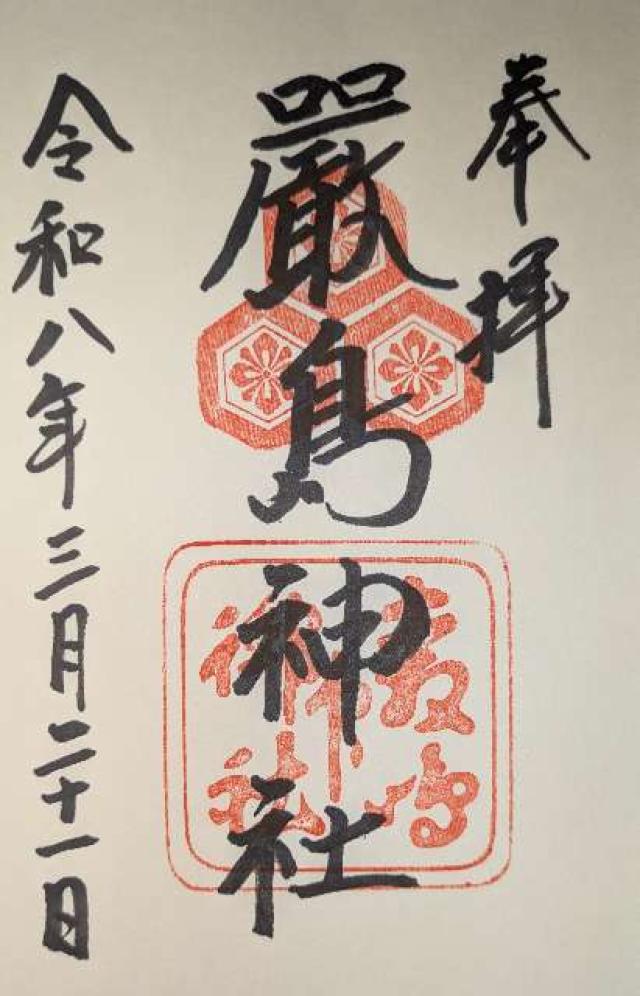 奉拝
厳島神社
令和八年三月二十一日